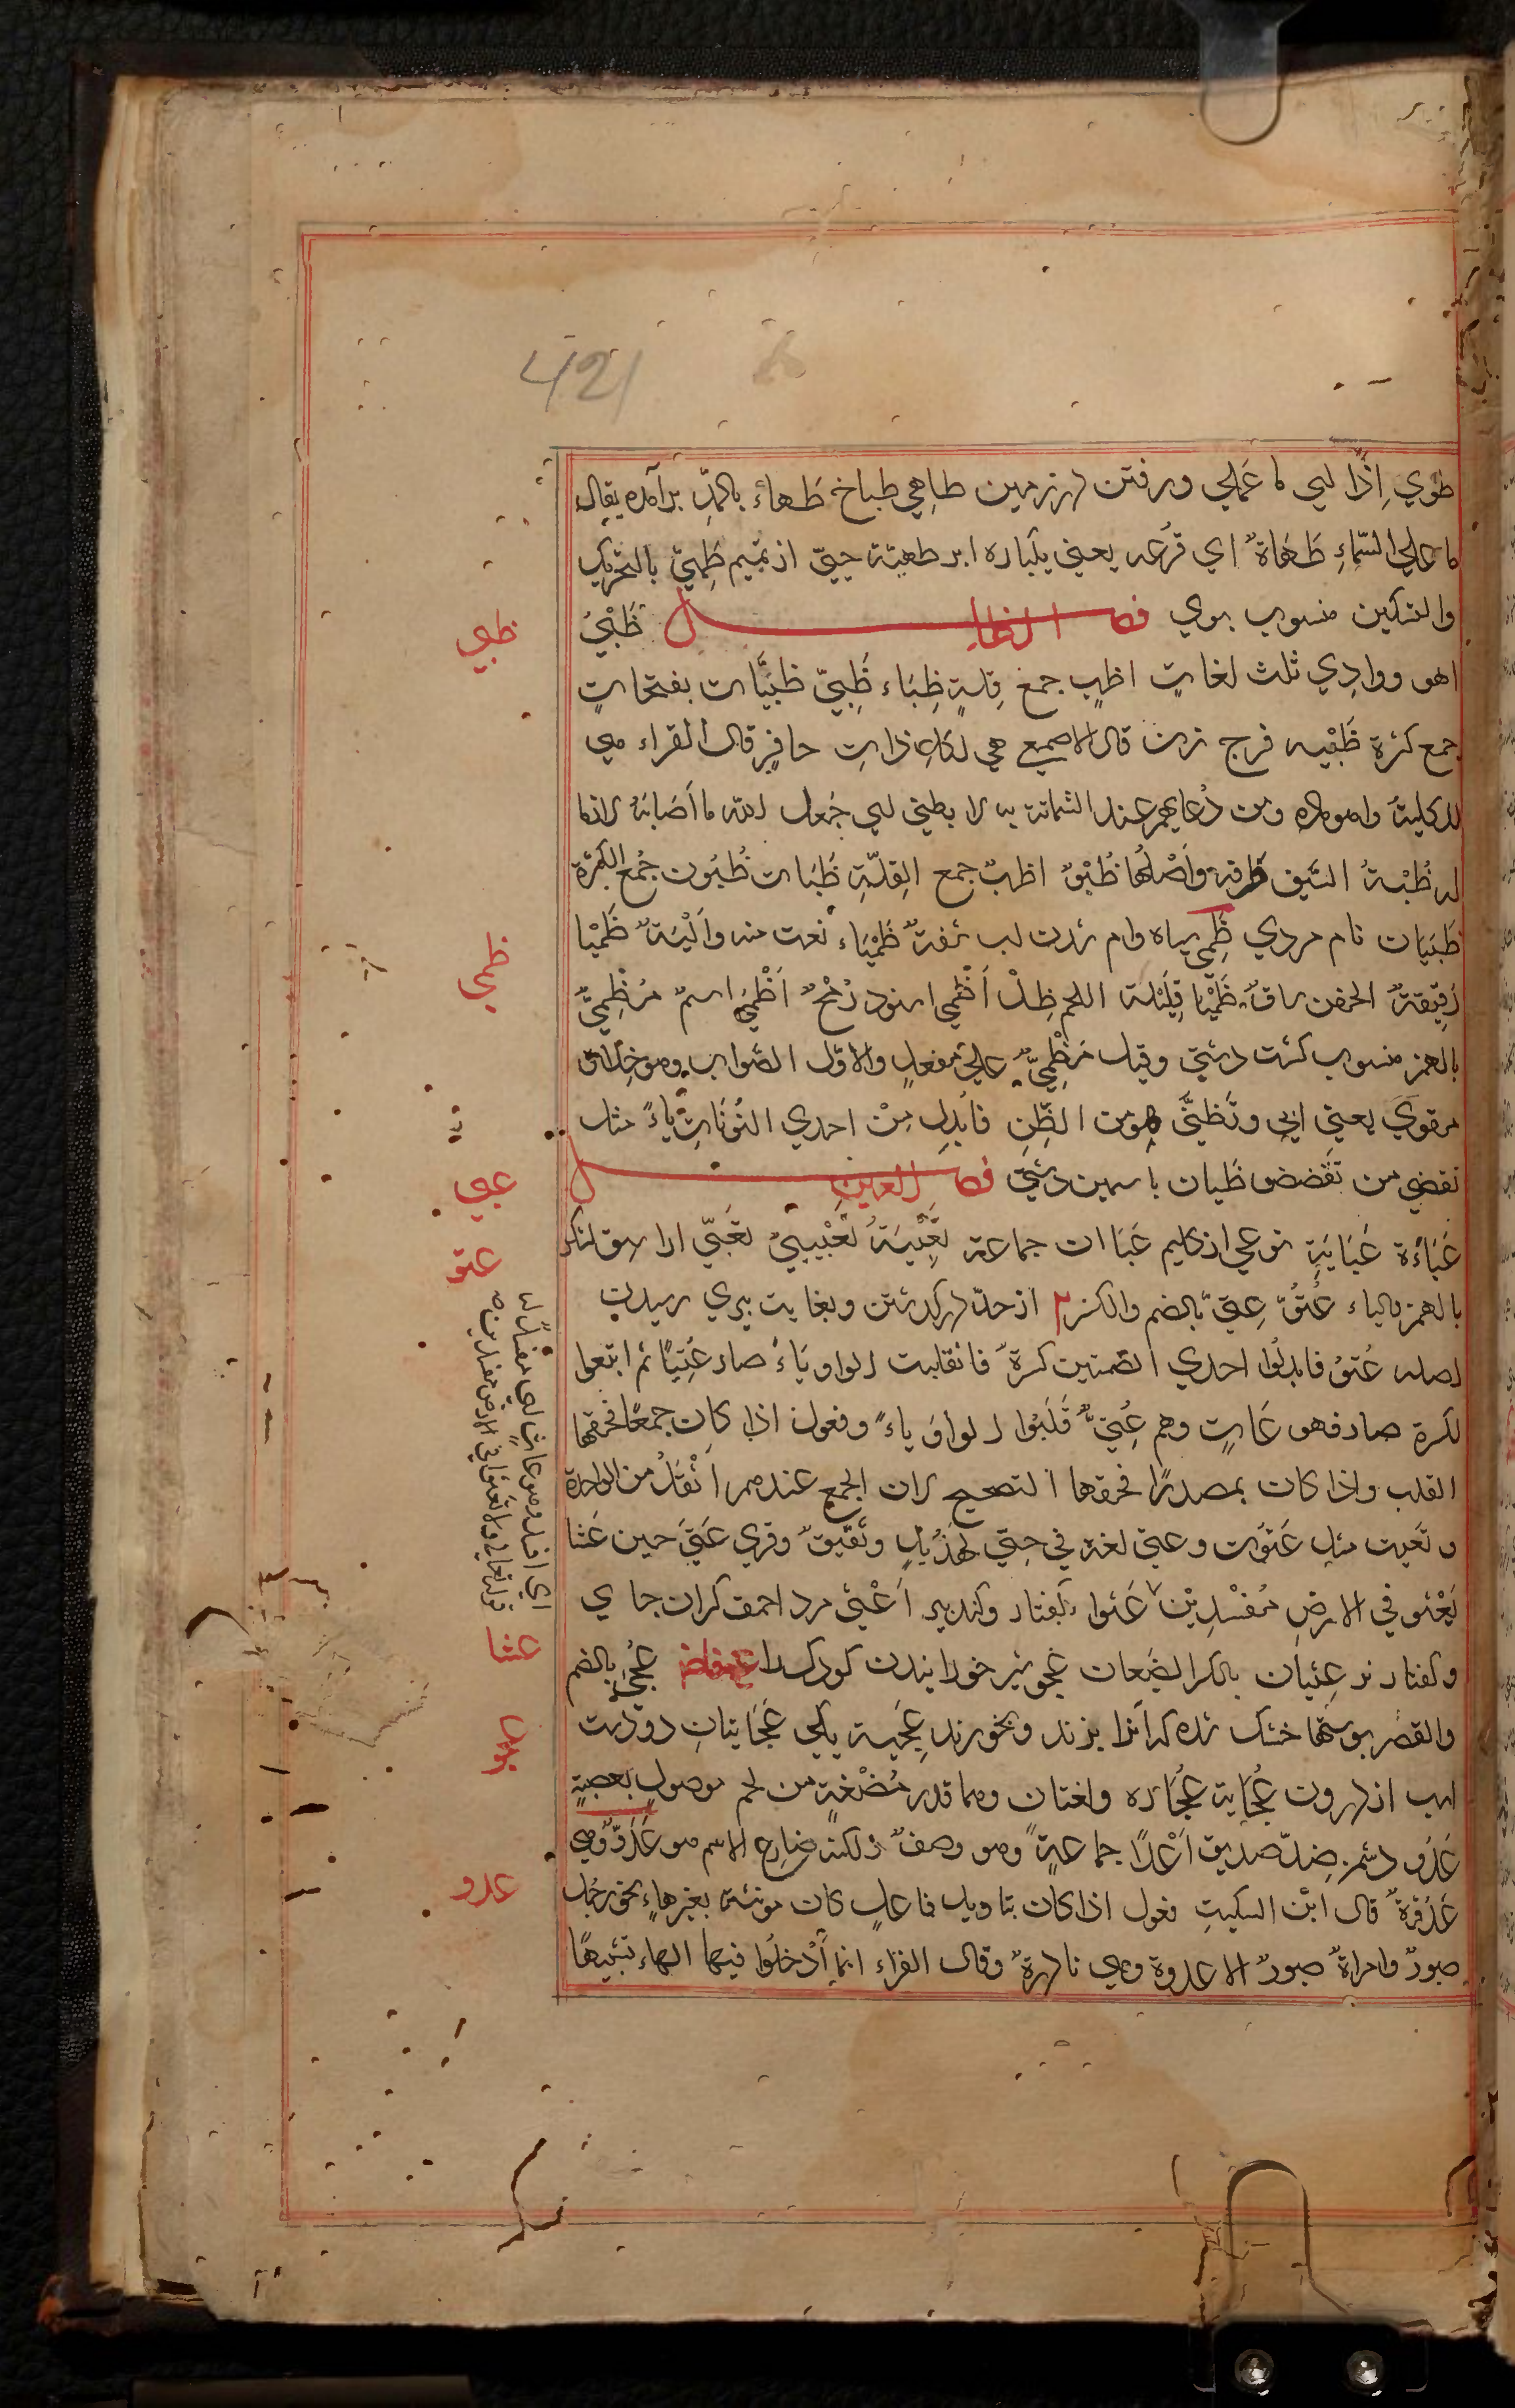 421
طوي إذًا لي ما عملي ورفتن در زمين طاهي طباخ طهاء بالمدّ برآمده يقال
ما علي السماءِ طهاةٌ اي قزعه يعني يكباره ابر طهية حيّ از تميم طهيّ بالتحريك
والتسكين منسوب بوي فصل الظاء ظبيٌ
اهو ووادي ثلث لغات اظبٍ جمع قلةٍ ظباء ظبيّ ظبيّات بفتحاتٍ
جمع كثرة ظبيه فرج زن قال الاصمعي هي لكل ذات حافرٍ قال الفراء هي
للكلبة واهو ماده ومن دعايهم عند الشماتة به لا بظبي اي جعل الله ما اصابهُ لازما
له ظبةُ السّيف طرفه وأصلها ظبوٌ اظبٌ جمع القلّةِ ظبات ظبون جمع الكثرة
ظبيات نام مردي ظمي سياه وام شدن لب شفةٌ ظمياء نعت منه والثةٌ ظميا
رقيقةٌ الجفن ساقٌ ظميا قليلة اللحم ظلّ أظمي اسود رمحٌ أظمي اسمر مظميٌّ
بالهمز منسوب كشت دشتي وقيل مظميٌّ علي مفعلٍ والاوّل الصّواب وهو خلاف
مرقوي يعني ابي وتظنّي هو من الظّنِ فابدل من احدي النّونات ياءً مثل
تقضي من تقضض ظيان ياسمين دشتي فصل العين
عباءة عباية نوعي از كليم عباات جماعة تعبيةُ تعبيبيٌ تعبّي اراستن لشكر
بالهمز والياء عتوّ عتيّ بالضم والكسر از حد در كذشتن وبغايت پيري رسيدن
اصله عتوٌ فابدلوا احدي الضمتين كسرةً فانقلبت الواو ياءً صار عتيًا ثم اتبعوا
الكسرة صار فهو عاتٍ وهم عتيٌّ قلبوا الواو ياءً وفعول اذا كان جمعًا فحقها
القلب واذا كان مصدرًا فحقها التصحيح لان الجمع عندهم اثقل من الواحدة
وتعيت مثل عتوت وعتي لغة في حتي لهذيلٍ وثقيفٌ وقري عتّي حين عثا
يعثو في الارض مفسدين عثوا كفتار وكندپير اعثي مرد احمق كران جاي
وكفتار نر عثيان بالكسر الضبعان عجو شير خورانيدن كودك را عجي بالضم
والقصر پوستها خشك شده كه آنرا بزند وبخورند عجية يكي عجايتان دو دست
اسب از درون عجاية عجاوه ولغتان وهما قدر مضغةٍ من لحم موصولٍ بعصبةٍ
عدو دشمن ضدّ صديق أعدًا جماعةٌ وهو وصفٌ ولكنه ضارع الاسم هو عدوٌّ وهي
عدوّةٌ قال ابن السكيتِ فعول اذا كان بتاويل فاعلٍ كان مونثة بغير هاءٍ نحو رجل
صبورٌ وامراةٌ صبورٌ الا عدوة وهي نادرةٌ وقال الفراء انما ادخلوا فيها الهاء تشبيهًا
ظبي
ظمي
عبي
عتو
عثا
عجو
عدو